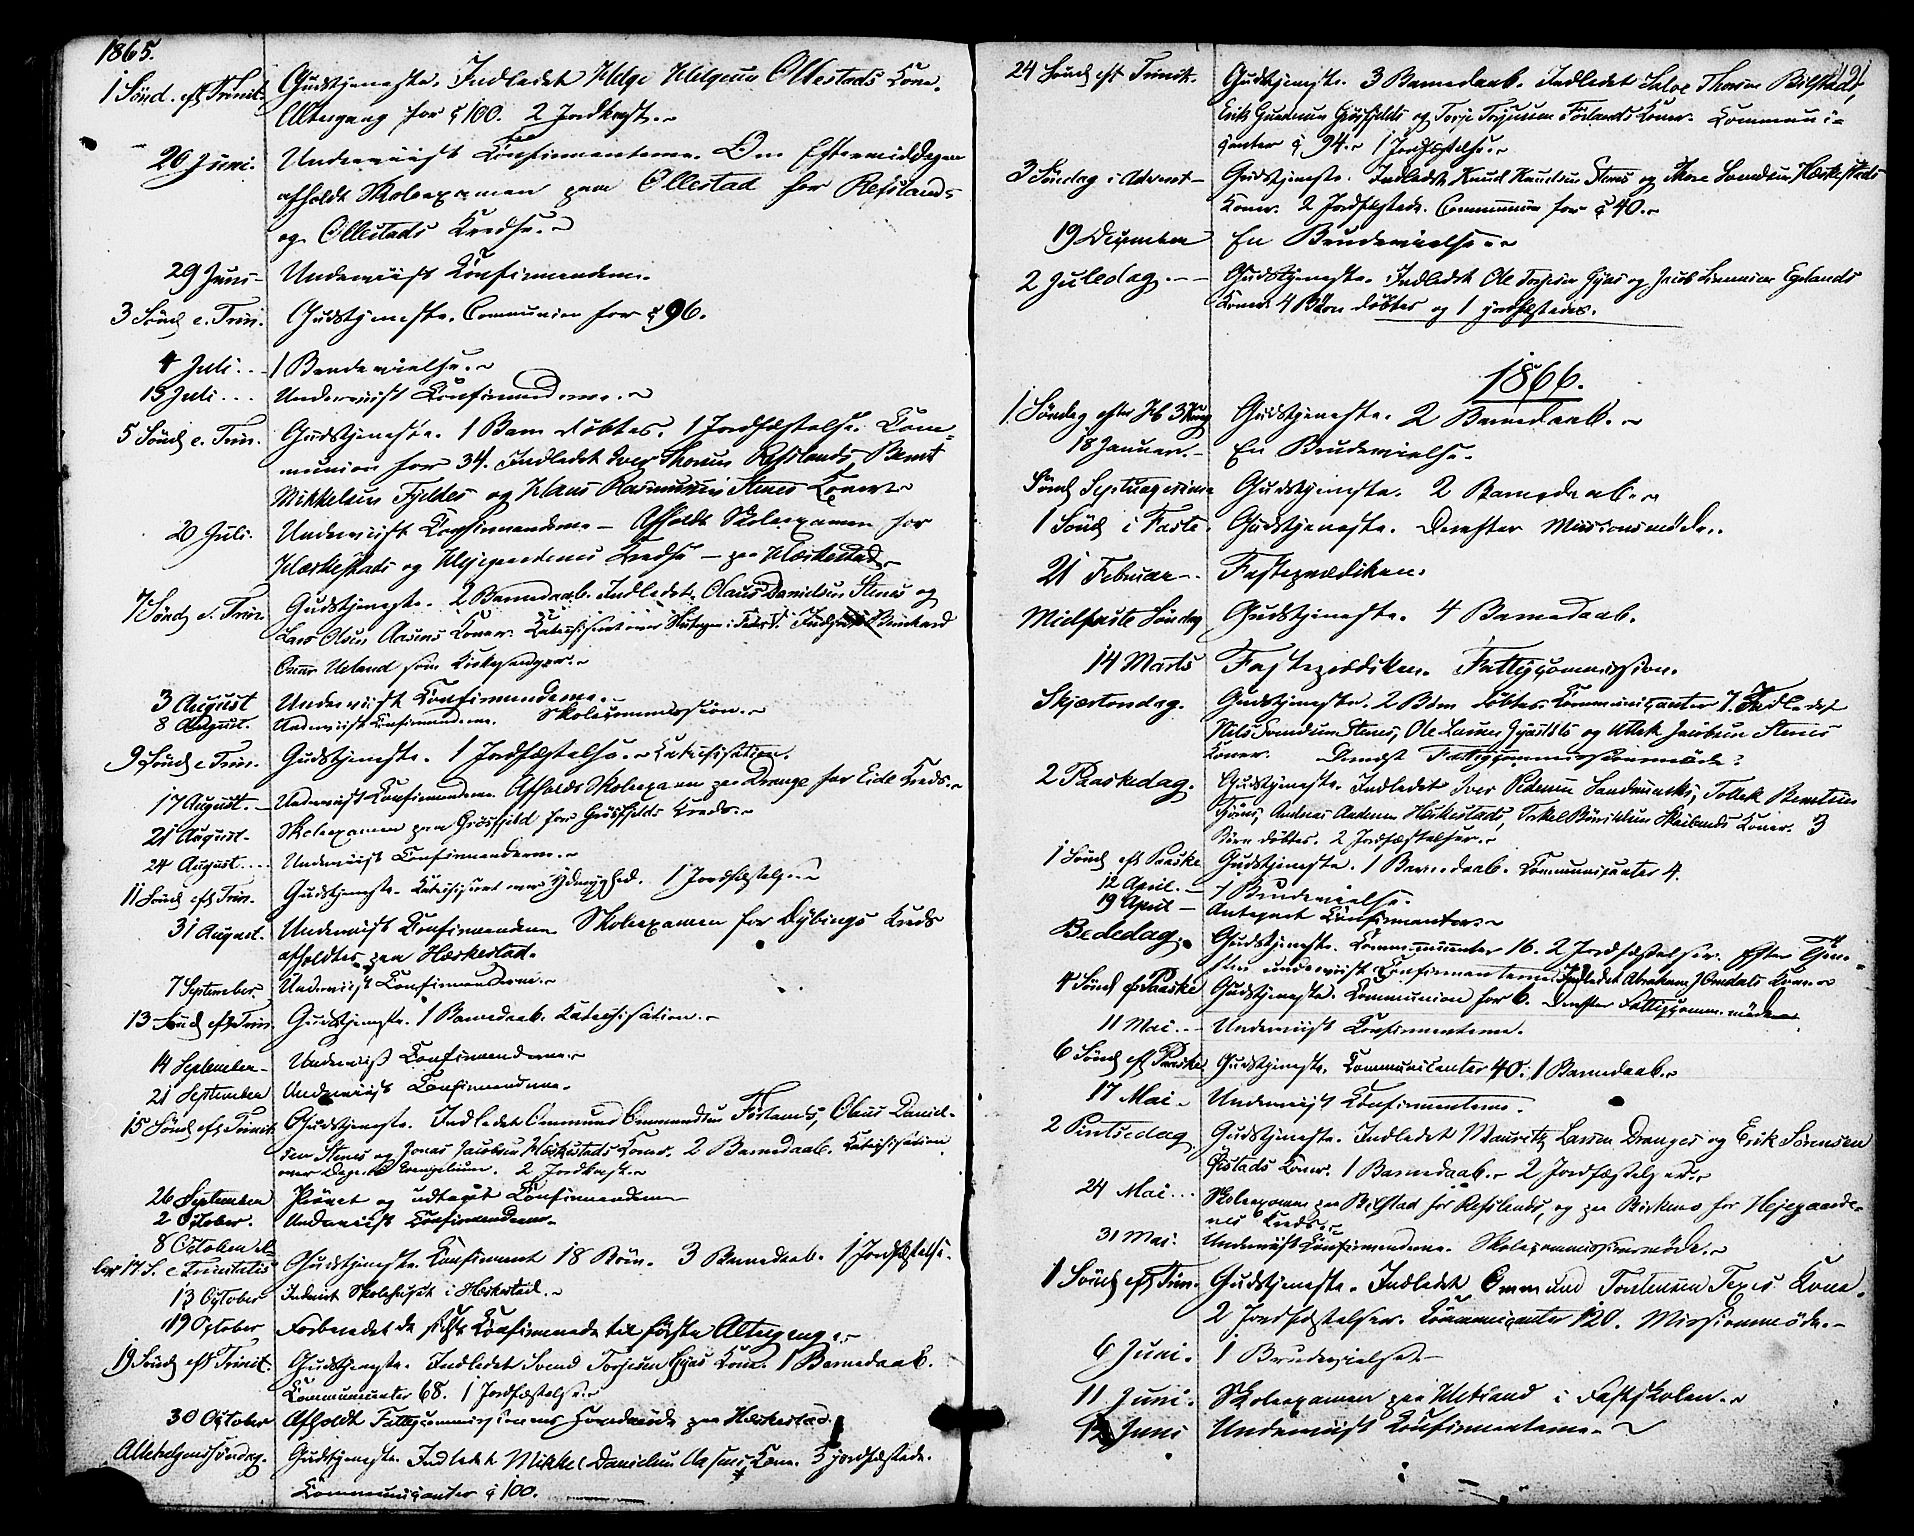 1865.
1 Sønd. eft Trinit. Gudstjeneste. Indledet Helge Helgesen Ollestads Kone.
Altergang for c 100. 2 Jordkast.
26 Juni. Underviist Confirmanterne. Om Eftermiddagen
afholdt Skoleexamen paa Ollestad for Refslands
og Ollestads Kredse.
29 Juni Underviist Confirmanderne.
3 Sønd e. Trin. Gudstjeneste. Communion for c 96.
4 Juli 1 Brudevielse.
13 Juli Underviist Confirmanderne.
5 Sønd e. Trin. Gudstjeneste. 1 Barn døbtes. 1 Jordfæstelse. Com-
munion for 34. Indledet Iver Thorsen Refslands, Bernt
Mikkelsen Fjeldes og Klaus Rasmussen Stenes Koner.
20 Juli. Underviist Confirmanderne - Afholdt Skoleexamen for
Hæskestads og Hejegaardenes Kredse - paa Hæskestad.
7 Sønd e. Trin. Gudstjeneste. 2 Barnedaab. Indledet Claus Danielsen Stenes og
Lars Olsen Aasens Koner. Katechiseret over
Omar Ueland som Kirkesanger.
3 August Underviist Confirmanderne.
8 August. Underviist Confirmanderne. Skolecommission.
9 Sønd e Trin. Gudstjeneste. 1 Jordfæstelse. Katechisation.
17 August. Underviist Confirmanderne. Afholdt Skoleexamen paa Drange for Eide Kreds.
21 August. Skoleexamen paa Grøsfjeld for Grøsfjelds Kreds.
24 August. Underviist Confirmanderne.
11 Sønd eft Trin. Gudstjeneste. Katechiseret over Ydmyghed. 1 Jordfæstelse.
31 August. Underviist Confirmanderne. Skoleexamen for Dybings Kreds
afholdtes paa Hæskestad.
7 September. Underviist Confirmanderne.
13 Sønd eft Trin. Gudstjeneste. 1 Barnedaab. Katechisation.
14 September Underviist Confirmanderne.
21 September Underviist Confirmanderne.
15 Sønd eft Trinit. Gudstjeneste. Indledet Ommund Ommundsen Førlands, Claus Daniel-
sen Stenes og Jonas Jacobsen Hæskestads Koner. 2 Barnedaab. Katechisation
over Dagens Evangelium. 2 Jordkast.
26 September Prøvet og udtaget Confirmanderne
2 October. Underviist Confirmanderne.
8 October el-
ler 17 S. e Trinitatis Gudstjeneste. Confirmeret 18 Børn. 3 Barnedaab. 1 Jordfæstelse.
13 October Indviet Skolehuset i Hæskestad.
19 October Forberedet de sidst Confirmerede til første Altergang.
19 Sønd eft Trinit. Gudstjeneste. Indledet Svend Torjesen Gyas Kone. 1 Barnedaab.
Communicanter 68. 1 Jordfæstelse.
30 October Afholdt Fattigcommissionens Hovedmøde paa Hæskestad.
Allehelgenssøndag. Gudstjeneste. Indledet Mikkel Danielsen Aasens Kone. 3 jordfæstede.
Communicanter c 100.
24 Sønd eft Trinit. Gudstjeneste. 3 Barnedaab. Indledet Salve Thorsen Bilstads,
Erik Gundersen Grøsfjelds og Torje Torjussen Førlands Koner. Communi-
canter c 94. 1 Jordfæstelse.
3 Søndag i Advent Gudstjeneste. Indledet Knud Knudsen Stenes og Tore Svendsen Hæskestads
Koner. 2 Jordfæstede. Communion for c 40.
19 December En Brudevielse.
2 Juledag. Gudstjeneste. Indledet Ole Torjesen Gyas og Jacob Egelands
Koner. 4 Børn døbtes og 1 jordfæstedes.
1866.
1 Søndag efter H 3 Kong Gudstjeneste. 2 Barnedaab.
18 Januar. En Brudevielse.
Sønd Septuagesima Gudstjeneste. 2 Barnedaab.
1 Sønd i Faste. Gudstjeneste. Derefter Missionsmøde.
21 Februar Fasteprædiken.
Midfaste Søndag Gudstjeneste. 4 Barnedaab.
14 Marts Fasteprædiken. Fattigcommission.
Skjærtorsdag. Gudstjeneste. 2 Børn døbtes. Communicanter 7. Indledet
Nils Svendsen Stenes, Ole Larsen og Tollek Jacobsen Stenes
Koner. Dernæst Fattigcommissionsmøde.
2 Paaskedag. Gudstjeneste. Indledet Iver Pedersen Sandsmarks, Tollek Berntsen
Andreas Andersen Hæskestads, Torkel Skailands Koner. 3
Børn døbtes. 2 Jordfæstelser.
1 Sønd eft Paaske Gudstjeneste. 1 Barnedaab. Communicanter 4.
12 April. 1 Brudevielse.
19 April Antegnet Confirmanter.
Bededag. Gudstjeneste. Communicanter 16. 2 Jordfæstelser. Efter Tjene-
sten underviist Confirmanterne. Indledet Abraham Omdals Kone
4 Sønd eft Paaske Gudstjeneste. Communion for 6. Derefter Fattigcomm. møde
11 Mai. Underviist Confirmanterne.
6 Sønd eft Paaske Gudstjeneste. Communicanter 40. 1 Barnedaab.
17 Mai Underviist Confirmanterne.
2 Pintsedag Gudstjeneste. Indledet Mauritz Larsen Dranges og Erik Sørensen
Ørstads Koner. 1 Barnedaab. 2 Jordfæstelser.
24 Mai Skoleexamen paa Bilstad for Refslands, og paa Birkemo for Hejegaarde-
nes Kreds.
31 Mai. Underviist Confirmanderne. Skolecommissionsmøde.
1 Sønd eft Trin. Gudstjeneste. Indledet Ommund Torstensen Kone.
2 Jordfæstelser. Communicanter 120. Missionsmøde.
6 Juni. 1 Brudevielse.
11 Juni. Skoleexamen paa Ueland i Fastskolen.
Juni Underviist Confirmanterne.